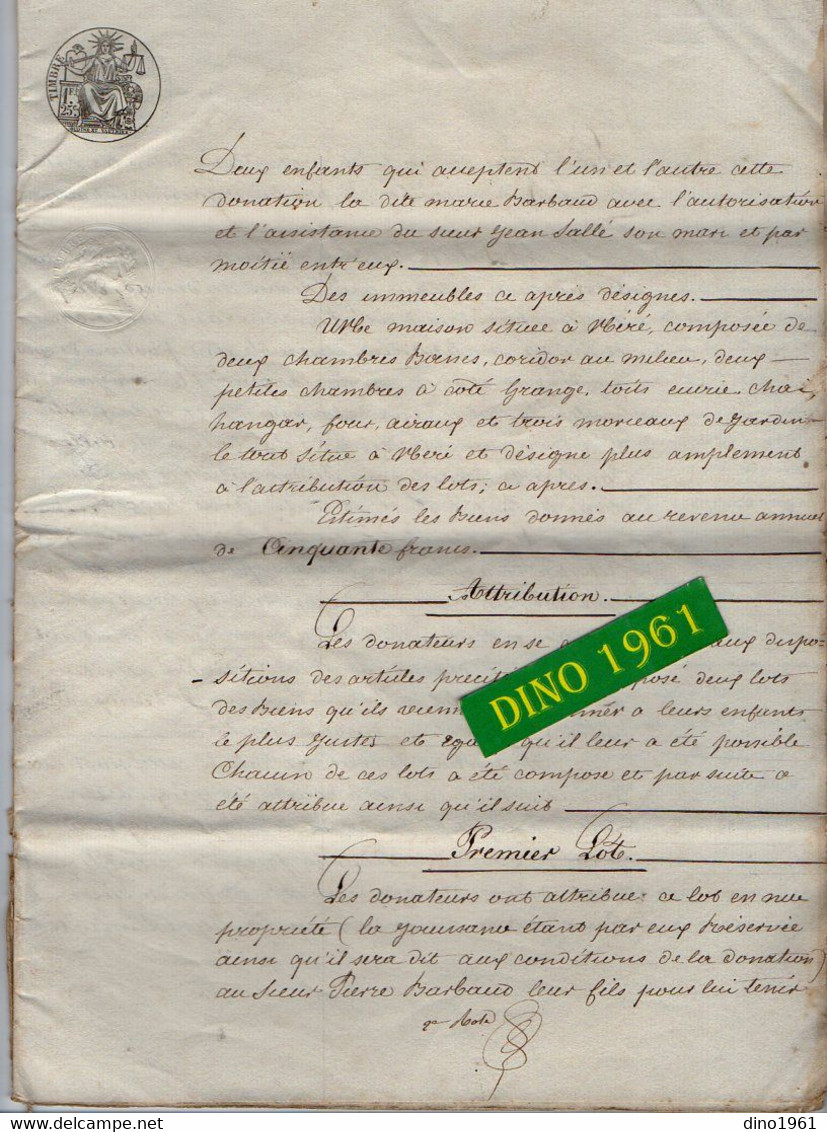 TIMBRE
25
Deux enfants qui aceptent l'un et l'autre cette
donation la dite marie Barbaud avec l'autorisation
et l'assistance du sieur Jean Sallé son mari et par
moitié entr'eux.
Des immeubles ci après désignes.
Une maison située à Néré, composée de
deux chambres Basses, coridor au milieu, deux
petites chambres à coté Grange, toits eurie, chai,
hangar, four, airaux et trois morceaux de Jardin
le tout situe à Neré et désigne plus amplement
à l'attribution des lots; ci apres.
Estimés les Biens donnés au revenu annuel
de Cinquante francs.
Attribution.
Les donateurs en se aux dispo-
- sitions des articles posé deux lots
des Biens qu'ils à leurs enfants
le plus Justes et qu'il leur a été possible
Chacun de ces lots a été compose et par suite a
été attribue ainsi qu'il suit
Premier Lôt.
Les donateurs ont attribue ce lot en nue
propriété (la Jouissance étant par eux Réservée
ainsi qu'il sera dit aux conditions de la donation)
au Sieur Pierre Barbaud leur fils pour lui tenir
2e Role
DINO 1961
dino1961